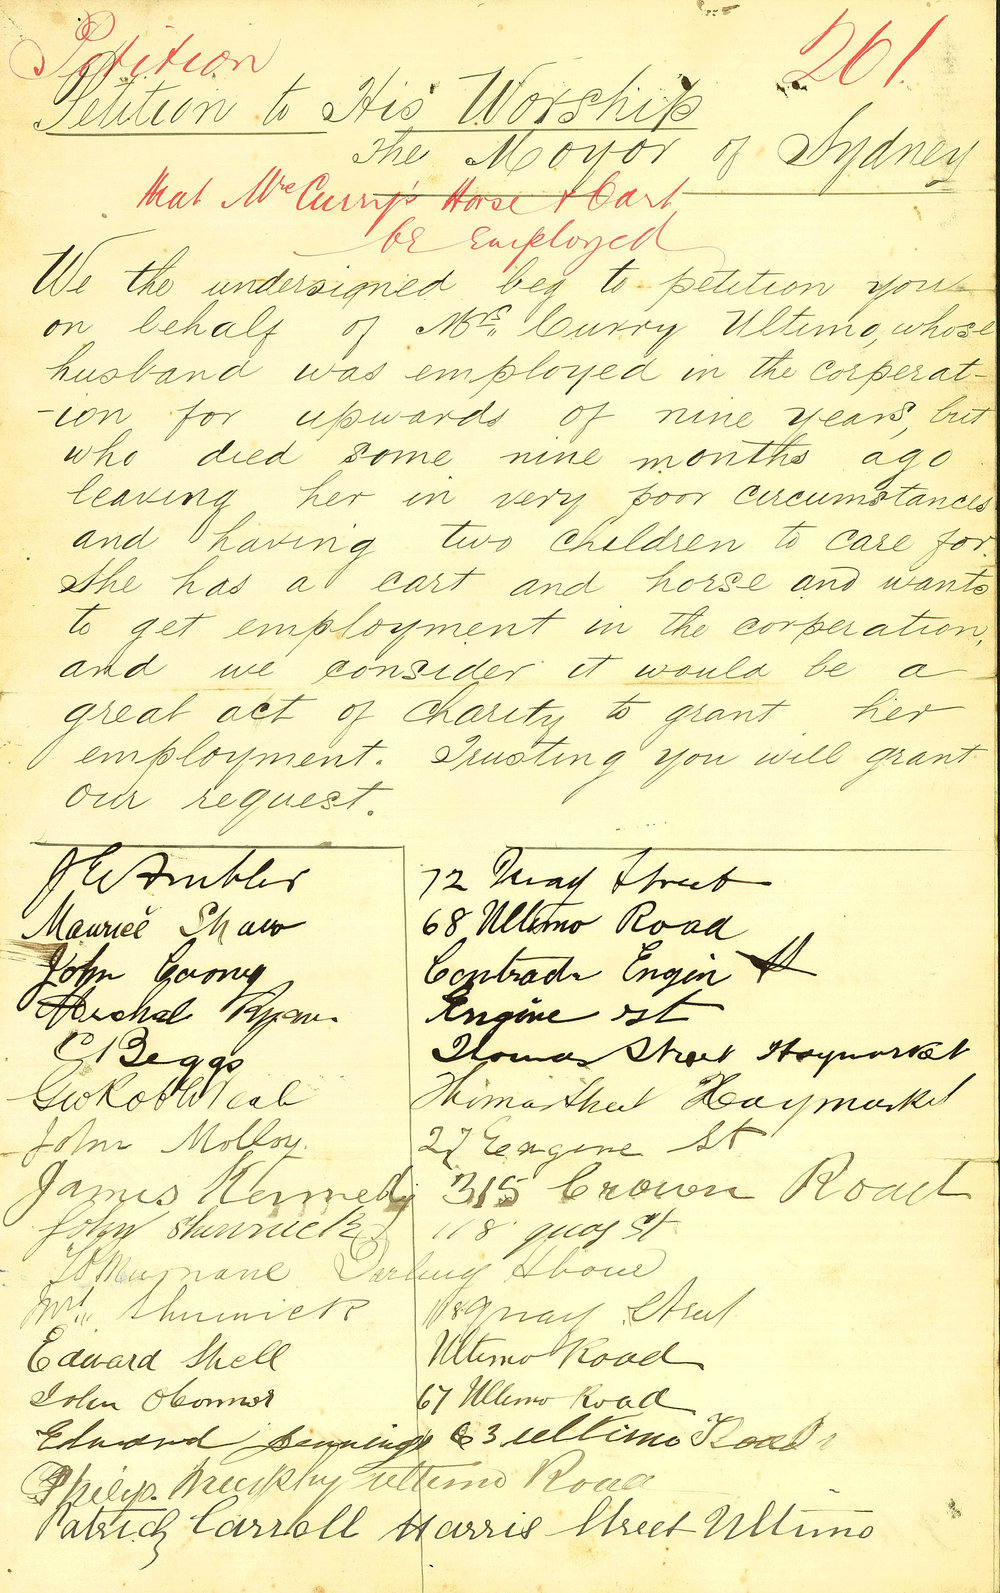 Petition
261.
Petition to His Worship
The Mayor of Sydney
that Mrs Curry's Horse & Cart
be Employed
We the undersigned beg to petition you
on behalf of Mrs. Curry Ultimo, whose
husband was employed in the corperat-
-ion for upwards of nine years, but
who died some nine months ago
leaving her in very poor circumstances
and having two children to care for.
She has a cart and horse and wants
to get employment in the corperation,
and we consider it would be a
great act of charity to grant her
employment. Trusting you will grant
our request.
72 Quay Street
Maurice Shaw 68 Ultimo Road
John Engin St
Ryan Engine st
C Beggs Thomas Street Haymarket
Thomas Street Haymarket
John Molloy. 27 Engine St
James Kennedy 315 Crown Road
John Shinnick 118 quay St
Darling
Shinnick 118 quay Street
Edward Shell Ultimo Road
John OConnor 67 Ultimo Road
Edward Jennings 63 ultimo Road
Philip. Murphy ultimo Road
Patrick Carroll Harris Street Ultimo